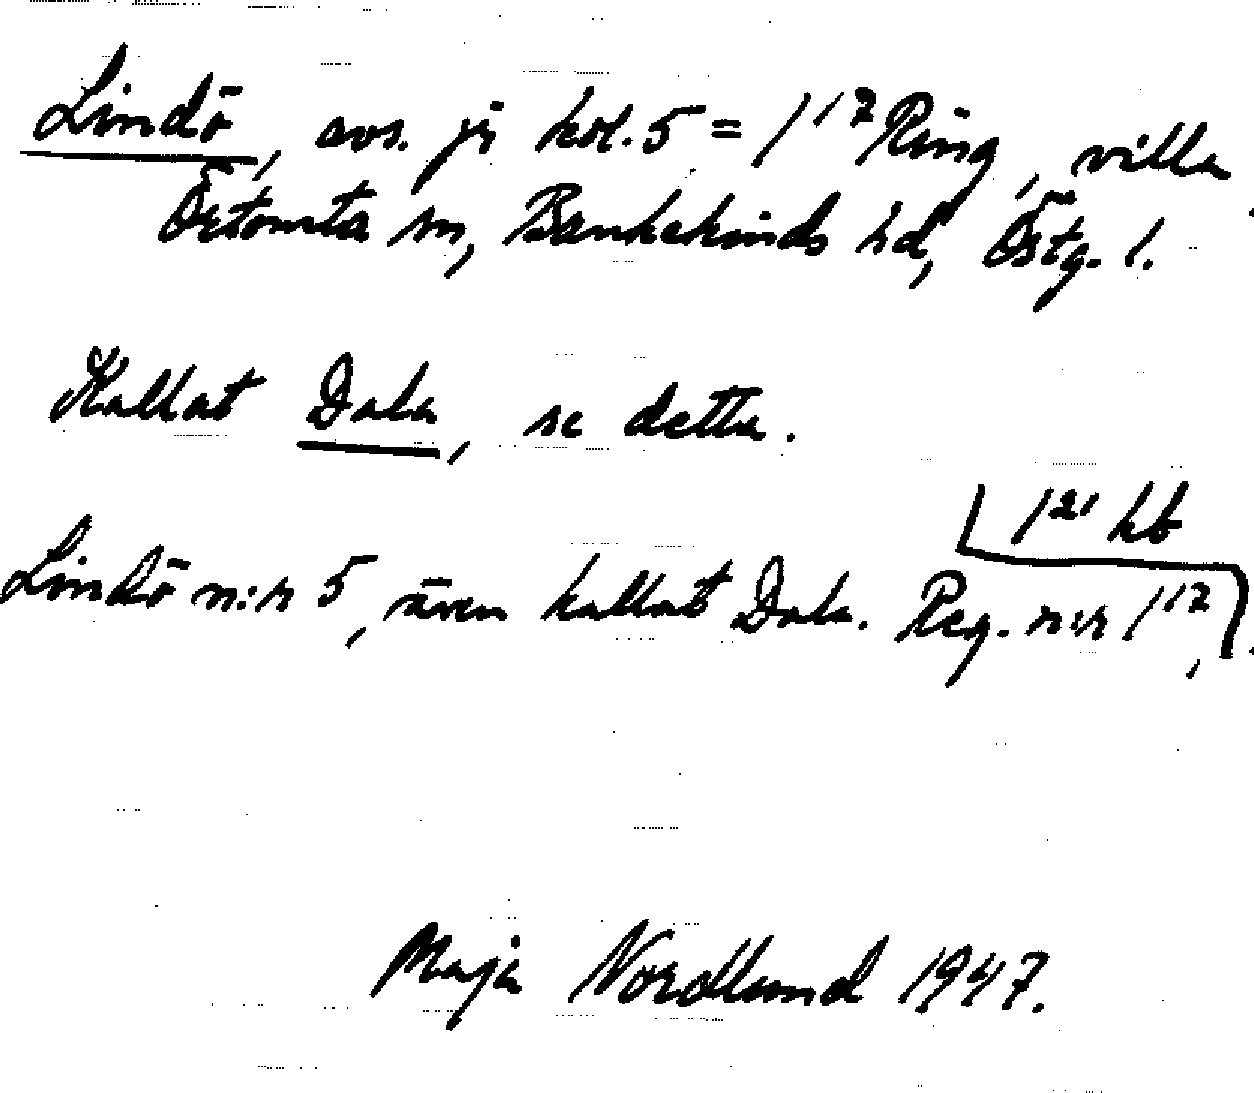 Lindö, avs. jr kol. 5 = 1¹⁷ Ring, villa
Örtomta sn, Bankekinds hd, Östg. l.
Kallat Dala, se detta.
1²¹ kb
Lindö n:r 5, även kallat Dala. Reg. n:r 1¹⁷,.
Maja Nordlund 1947.